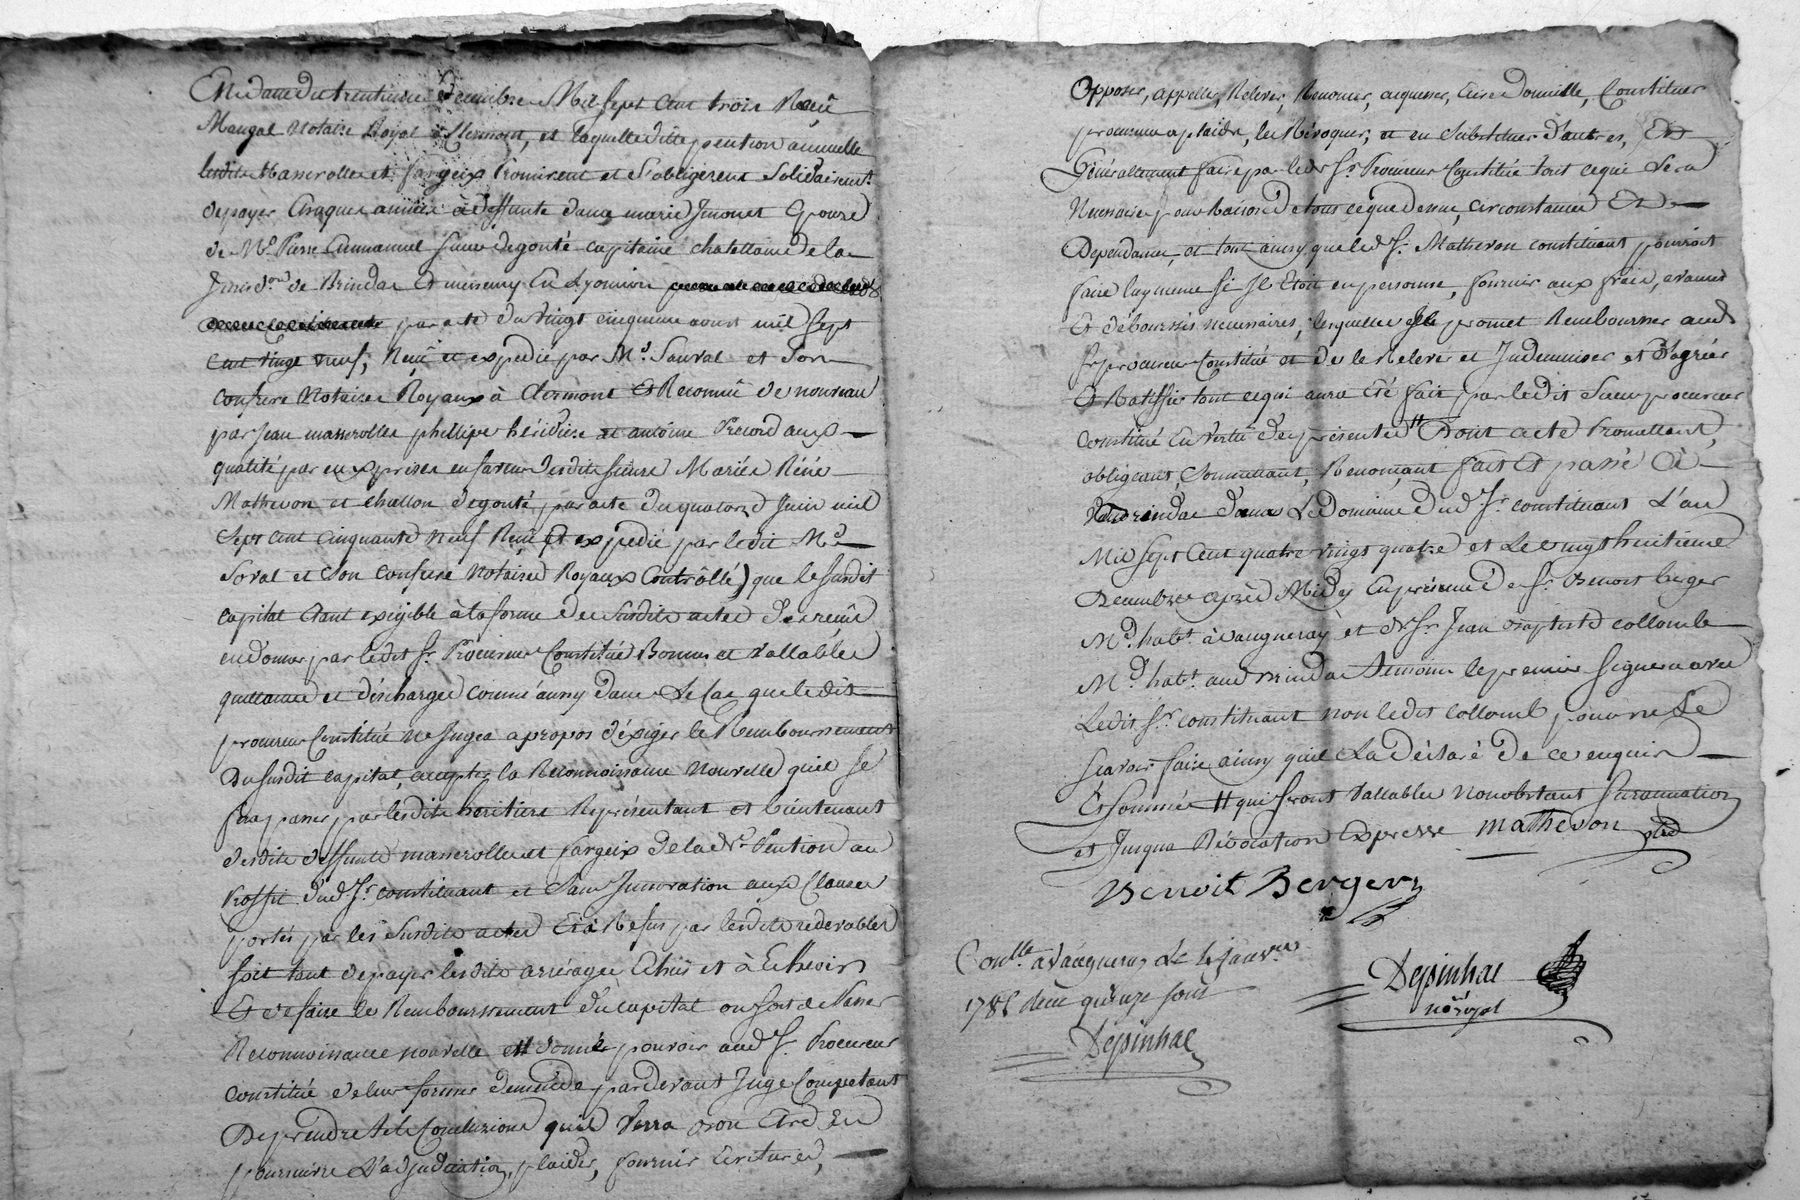 En datte du trentieme decembre Mil sept cent trois Reçû
Maugal Notaire Royal à Clermont, et laquelle ditte pention annuelle
lesdits Masserolles et fargeix Promirent et S'obligerent Solidairem.t
depayer chaque année à deffunte dame marie Jmonet Epouze
de M.r Pierre Emmanuel sieur degouté capitaine chatellain de la
Jurisd.on de Brindas Et messemy En Lyonnois
par acte du vingt cinquieme aoust mil sept
cent vingt neuf, Reçû et expedié par M.e Sauval et Son
confrere Notaires Royaux à Clermont Et Reconnû de nouveau
par Jean masserolles phillipe héridiere et antoine Record aux
qualités par eux prises en faveur desdits sieurs Mariés Réné
Mathevon et Challon degouté, par acte du quatorze Juin mil
Sept cent cinquante neuf Reçû Et expedié par ledit M.e
Soval et Son confrere Notaires Royaux Controllé) que le susdit
capital Etant exigible à la forme des susdits actes
en donner par ledit S.r Procureur Constitué Bonnes et vallables
quittances et décharges comm'aussy dans Le Cas que ledit
procureur Constitué Ne Jugea apropos d'éxiger le Remboursement
Du susdit capital, accepter la Reconnoissance Nouvelle qu'il se
fera passer par lesdits heritiers Représentant et bientenant
desdits deffunts masserolles et fargeix de la d.e Pention au
Proffit dud S.r constituant et Sans Jnnovation aux Clauses
portés par les Susdits actes Et à Refus par lesdits redevables
soit tant depayer lesdits arrérages Echus et à Echeoir
Et de faire le Remboursement du capital ou soit de Passer
Reconnoissance nouvelle donné pouvoir aud S.r Procureur
Constitué de leur former demande pardevant Juge Compétant
De prendre tele Conclusions qu'il Verra bon Etre En
poursuivre L'adjudication, plaider, fournir Ecritures,
Opposer, appeller, Relever, Renoncer, acquiesser, Elire Domicille, Constituer
procureur aplaider, les Révoquer, et en Substituer d'autres, Et
Généralement faire par led S.r Procureur Constitué tout cequi Sera
Necessaire pour Raison de tous ceque dessus, circonstances Et
Dependances, et tout ainsy que led S.r Mathevon constituant pourroit
faire luy meme sé Jl Etoit en personne, fournir aux frais, avances
Et déboursés necessaires, lesquelles Jl promet Rembourser aud
S.r procureur Constitué et de le Relever et Jndemniser et d'agréer
Et Ratiffier tout cequi aura Eté fait par ledit Sieur procureur
constitué En vertu des présentes # Dont acte Promettant,
obligeant, Soumettant, Renonçant, fait Et passé à
Brindas dans Le Domaine dud S.r constituant L'an
Mil Sept Cent quatre vingt quatre et Le vingt huitieme
Decembre après Midy En présence de S.r Benoit berger
M.d hab.t à vaugneray et de S.r Jean Baptiste collomb
M.d hab.t aud Brindas temoins le premier signera avec
Ledit S.r constituant non ledit Collomb pour ne Le
scavoir faire ainsy qu'il La Déclaré de ce enquis
Et sommé # qui seront Vallables nonobstant Surannation
et Jusqua Révocation Expresse Mathevon
Benoit Berger
Con.lle à Vaugneray Le Janv.er
178 Reçu quinze sous
Depinhac
Depinhac
no.re royal